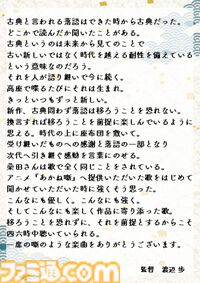 古典と言われる落語はできた時から古典だった。
どこかで読んだか聞いたことがある。
古典というのは未来から見てのことで
古い新しいではなく時代を越える耐性を備えている
という意味なのだろう。
それを人が語り継いで今に続く。
高座で喋るたびにそれは生まれ、
きっといつもずっと新しい。
新作、古典問わず落語は移ろうことを恐れない。
換言すれば移ろうことを前提に楽しんでいるように
思える。時代の上に座布団を敷いて。
受け継いだものへの感謝と落語の一部となり
次代へ引き継ぐ感動を言葉にのせる。
桑田さんは歌で全く同じことをされている。
アニメ『あかね噺』へ提供いただいた歌をはじめて
聞かせていただいた時に強くそう思った。
こんなにも優しく、こんなにも強く。
そしてこんなにも楽しく作品に寄り添った歌。
移ろうことを恐れずに、それを前提とするからこそ
四六時中聴いていられる。
一席の噺のような楽曲をありがとうございます。
監督 渡辺 歩
ファミ通.com